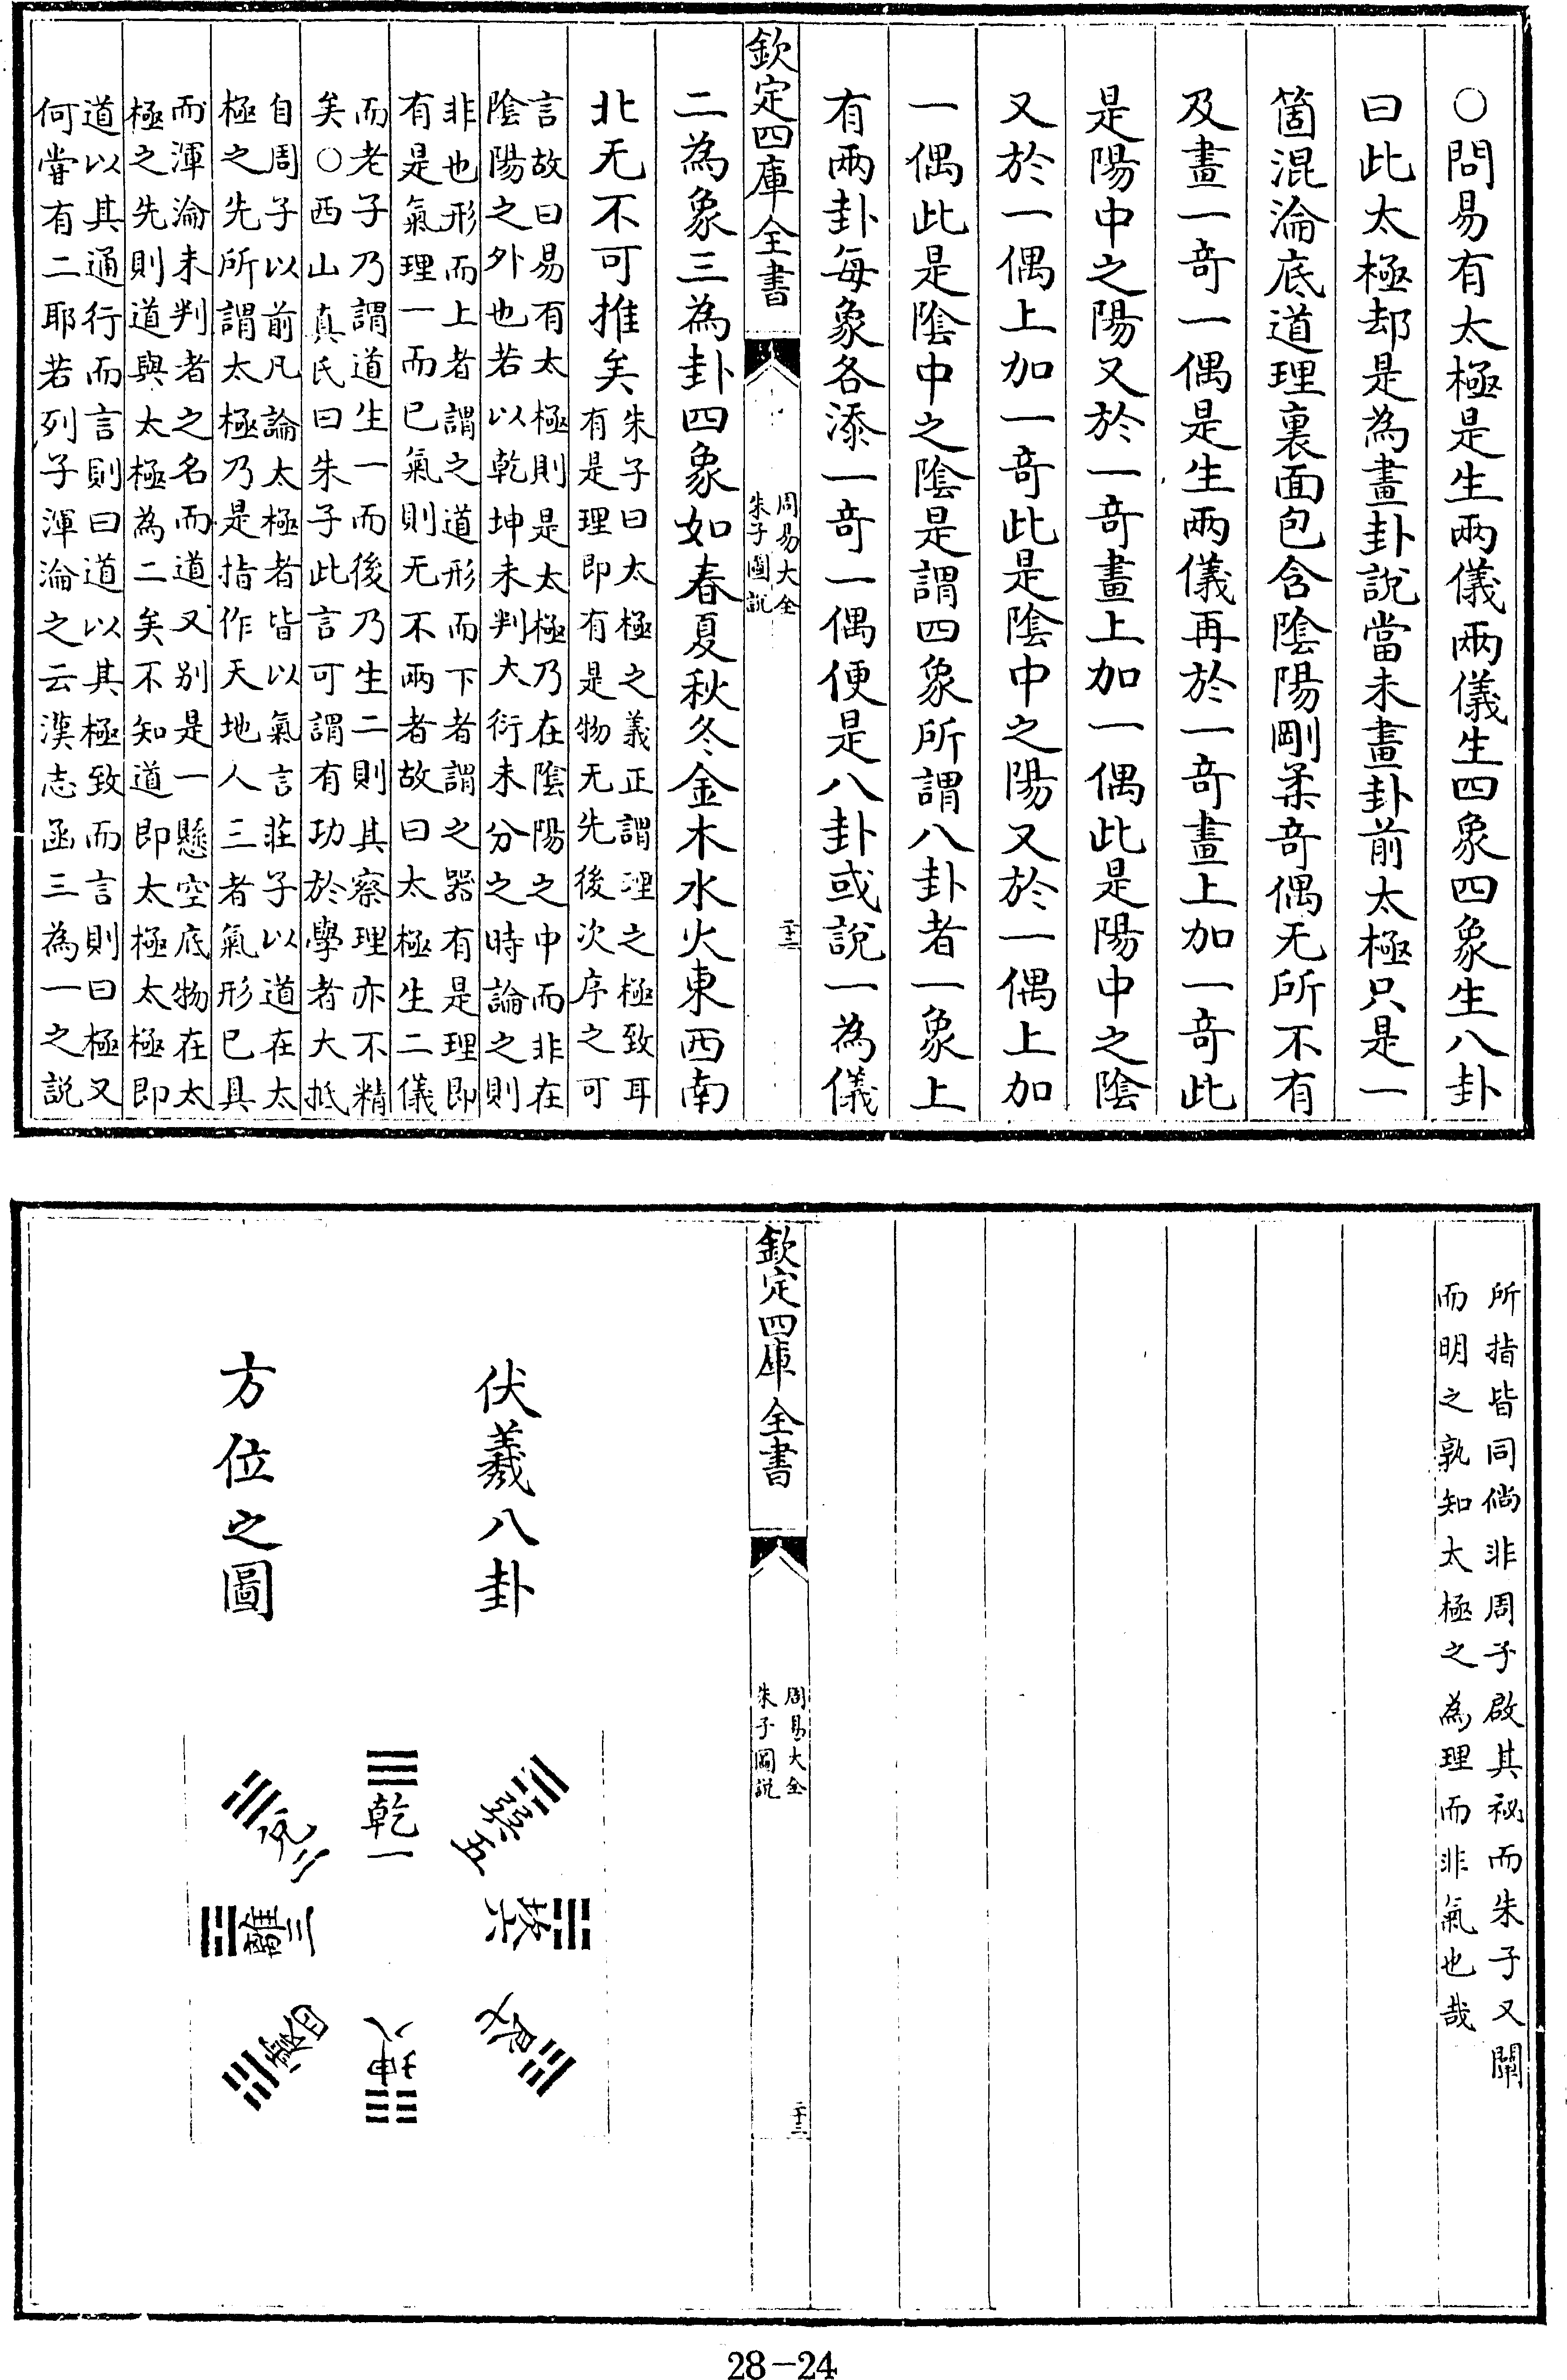 ○問易有太極是生兩儀兩儀生四象四象生八卦
曰此太極却是為畫卦說當未畫卦前太極只是一
箇混淪底道理裏面包含陰陽剛柔奇偶无所不有
及畫一奇一偶是生兩儀再於一奇畫上加一奇此
是陽中之陽又於一奇畫上加一偶此是陽中之陰
又於一偶上加一奇此是陰中之陽又於一偶上加
一偶此是陰中之陰是謂四象所謂八卦者一象上
有兩卦每象各添一奇一偶便是八卦或說一為儀
欽定四庫全書
周易大全
朱子圖說
二十三
二為象三為卦四象如春夏秋冬金木水火東西南
北无不可推矣
朱子曰太極之義正謂理之極致耳
有是理即有是物无先後次序之可
言故曰易有太極則是太極乃在陰陽之中而非在
陰陽之外也若以乾坤未判大衍未分之時論之則
非也形而上者謂之道形而下者謂之器有是理即
有是氣理一而已氣則无不兩者故曰太極生二儀
而老子乃謂道生一而後乃生二則其察理亦不精
矣○西山真氏曰朱子此言可謂有功於學者大抵
自周子以前凡論太極者皆以氣言莊子以道在太
極之先所謂太極乃是指作天地人三者氣形已具
而渾淪未判者之名而道又别是一懸空底物在太
極之先則道與太極為二矣不知道即太極太極即
道以其通行而言則曰道以其極致而言則曰極又
何甞有二耶若列子渾淪之云漢志函三為一之說
所指皆同倘非周子啟其祕而朱子又闡
而明之孰知太極之為理而非氣也哉
欽定四庫全書
周易大全
朱子圖說
二十三
伏羲八卦
方位之圖
乾一
兌二
離三
震四
巽五
坎六
艮七
坤八
28-24